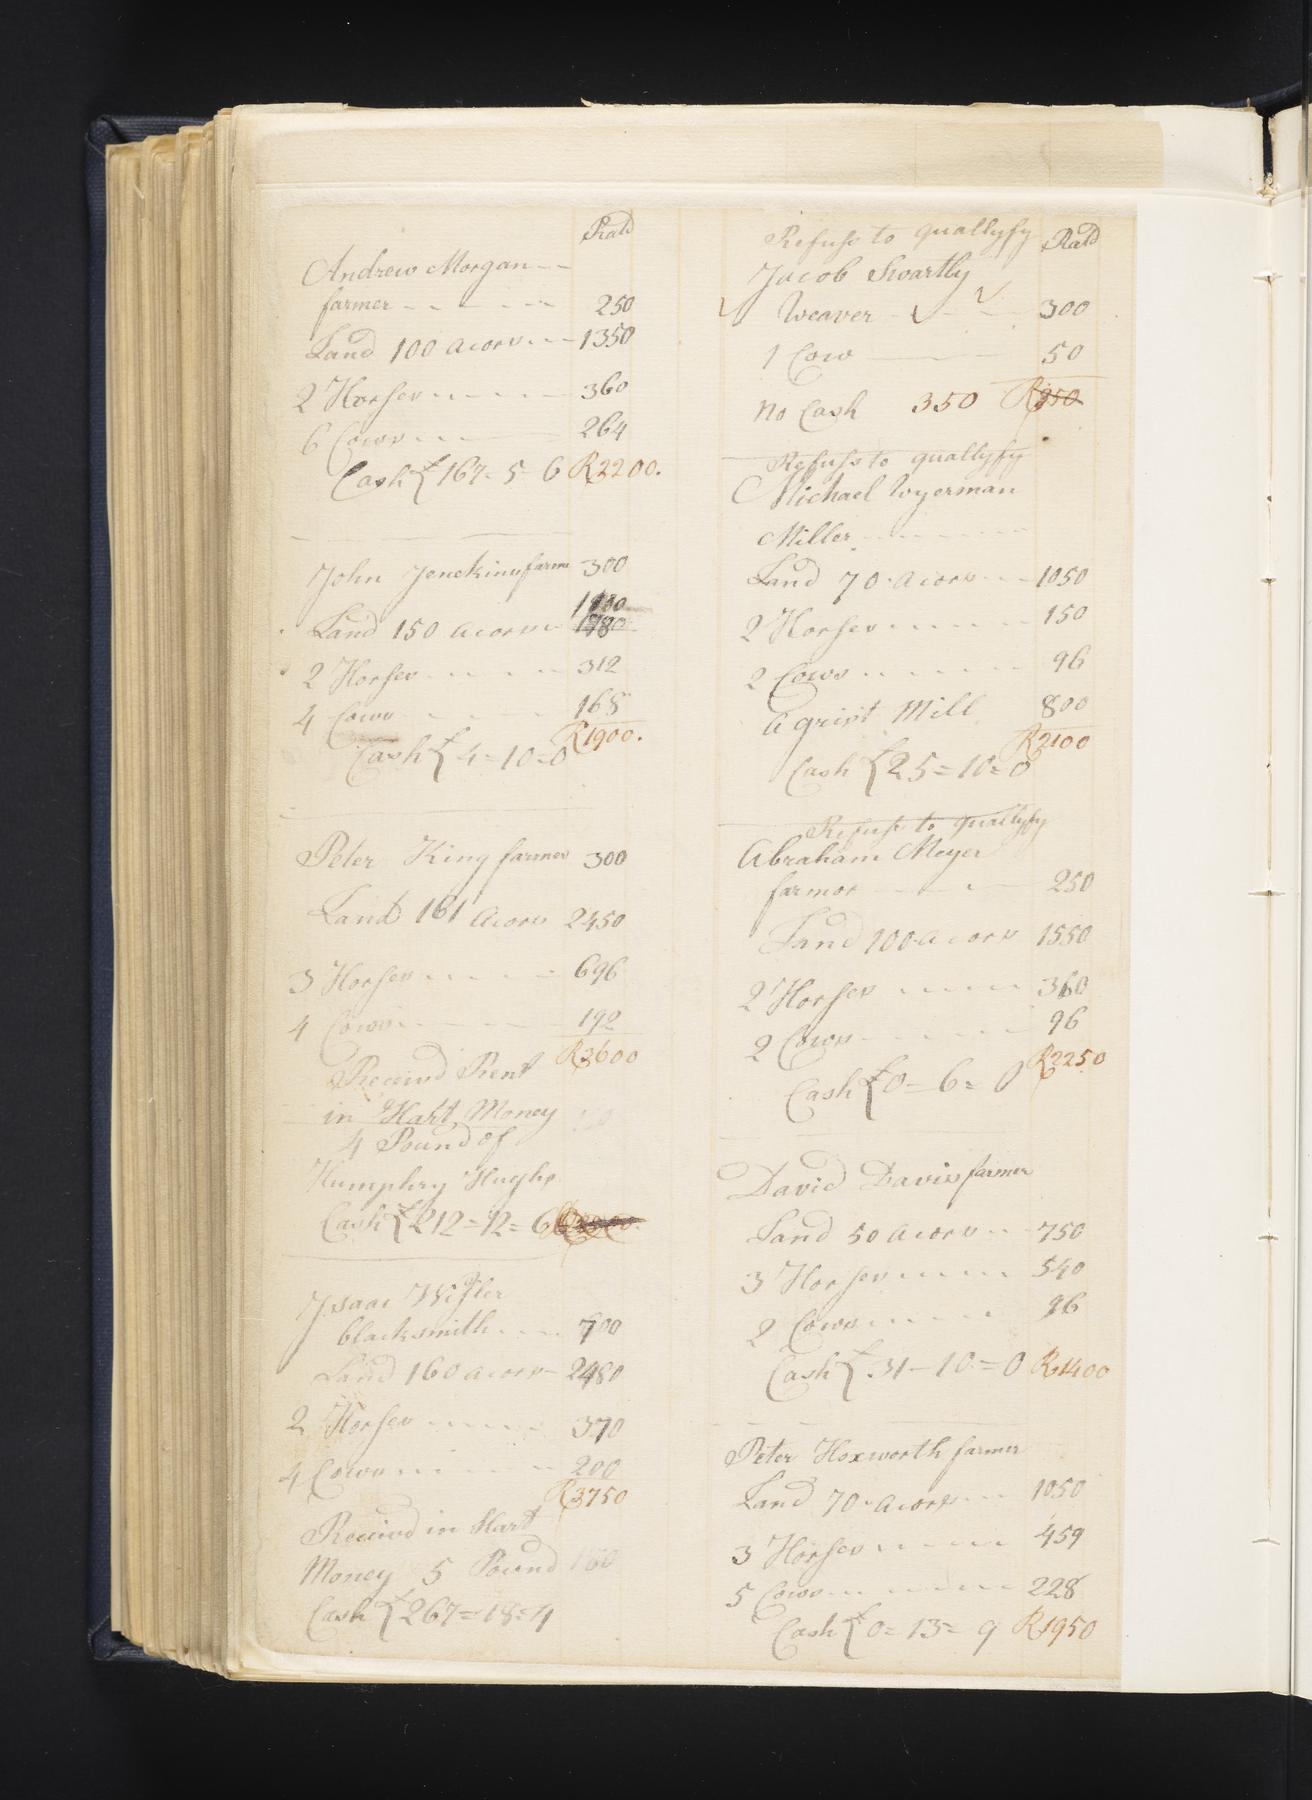 Rald
Andrew Morgan
farmer 250
Land 100 acors 1350
2 Horses 360
6 Cows 264
Cash £ 167=5=6 R2200.
John Jenckins farm 300
1180
Land 150 acors
2 Horses 312
4 Cows 168
R1900.
Cash £ 4=10=0
Peter King farmer 300
Land 161 Acors 2450
3 Horses 696
4 Cows 192
R3600
Receivd Rent
in Hart Money
4 Pound of
Humphry Hughs
Cash £ 212=12=6
Isaac Wisler
blacksmith 700
Land 160 acors 2480
2 Horses 370
4 Cows 200
R3750
Receivd in Hart
Money 5 Pound 180
Cash £ 267=18=4
Refuse to quallyfy Rald
Jacob Swartly
Weaver 300
1 Cow 50
No Cash 350 R350
Refuse to quallyfy
Michael Wyerman
Miller
Land 70 acors 1050
2 Horses 150
2 Cows 96
a grist Mill 800
R2100
Cash £ 25=10=0
Refuse to quallyfy
Abraham Meyer
farmor 250
Land 100 acors 1550
2 Horses 360
2 Cows 96
R2250
Cash £ 0=6=0
David Davis farmer
Land 50 acors 750
3 Horses 540
2 Cows 96
Cash £ 31=10=0 R1400
Peter Hoxworth farmer
Land 70 acors 1050
3 Horses 459
5 Cows 228
Cash £ 0=13=9 R1950